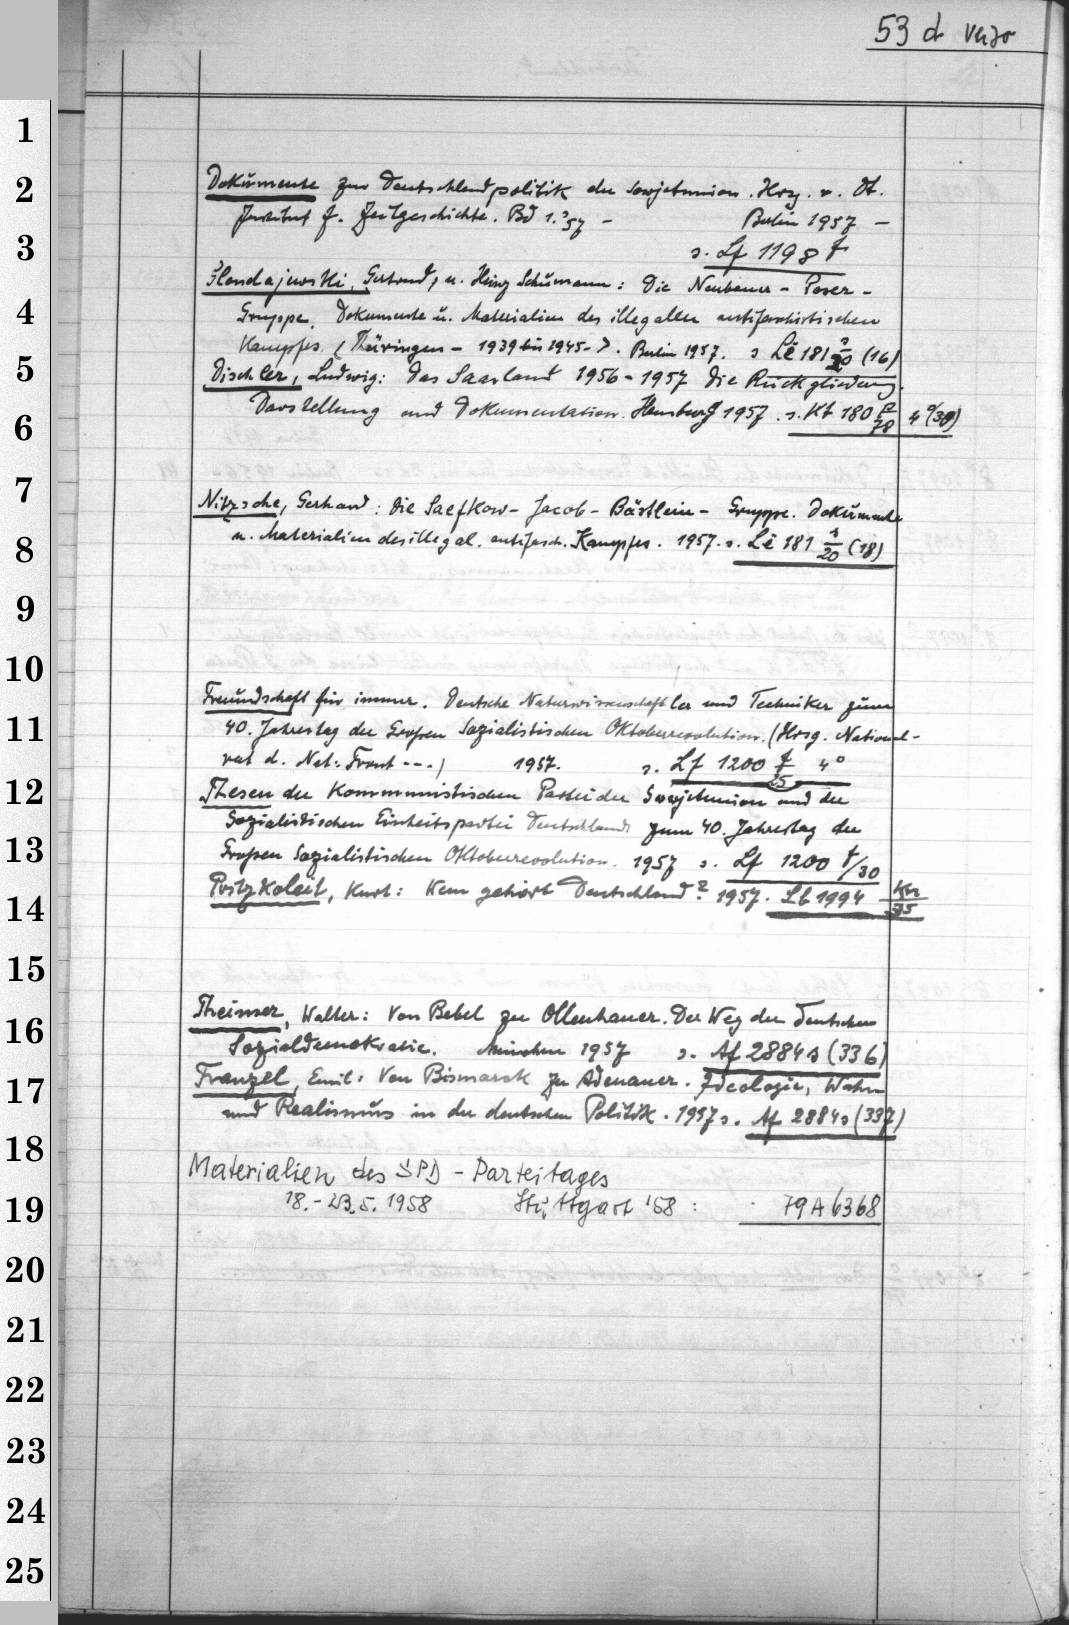 53 d verso
Dokumente zur Deutschlandpolitik der Sowjetunion. Hrsg. v. Dt.
Institut f. Zeitgeschichte. Bd 1. '57 - Berlin 1957 -
s. Lf 1198 f
Glondajewski, Gertrud, u. Heinz Schumann: Die Neubauer-Poser-
Gruppe. Dokumente u. Materialien des illegalen antifaschistischen
Kampfes. (Thüringen - 1939 bis 1945-). Berlin 1957. s Lë 181 20 (16)
Dischler, Ludwig: Das Saarland 1956-1957 Die Rückgliederung.
Darstellung und Dokumentation. Hamburg 1957. s. Kt 180 78 4° (39)
Nitzsche, Gerhard: Die Saefkow-Jacob-Bästlein-Gruppe. Dokumente
u. Materialien des illegal. antifasch. Kampfes. 1957. s. Lë 181 20 (18)
Freundschaft für immer. Deutsche Naturwissenschaftler und Techniker zum
40. Jahrestag der Großen Sozialistischen Oktoberrevolution. (Hrsg. National-
rat d. Nat. Front ---) 1957. s. Lf 1200 f 25 4°
Thesen der Kommunistischen Partei der Sowjetunion und der
Sozialistischen Einheitspartei Deutschlands zum 40. Jahrestag der
Großen Sozialistischen Oktoberrevolution. 1957 s. Lf 1200 f/30
Pritzkoleit, Kurt: Wem gehört Deutschland? 1957. Lb 1994 75
Theimer, Walter: Von Bebel zu Ollenhauer. Der Weg der deutschen
Sozialdemokratie. München 1957 s. Af 2884s (336)
Franzel, Emil: Von Bismarck zu Adenauer. Ideologie, Wahn
und Realismus in der deutschen Politik. 1957 s. Af 2884s (337)
Materialien des SPD - Parteitages
18.-23.5.1958 Stuttgart '58: 79 A 6368
1
2
3
4
5
6
7
8
9
10
11
12
13
14
15
16
17
18
19
20
21
22
23
24
25